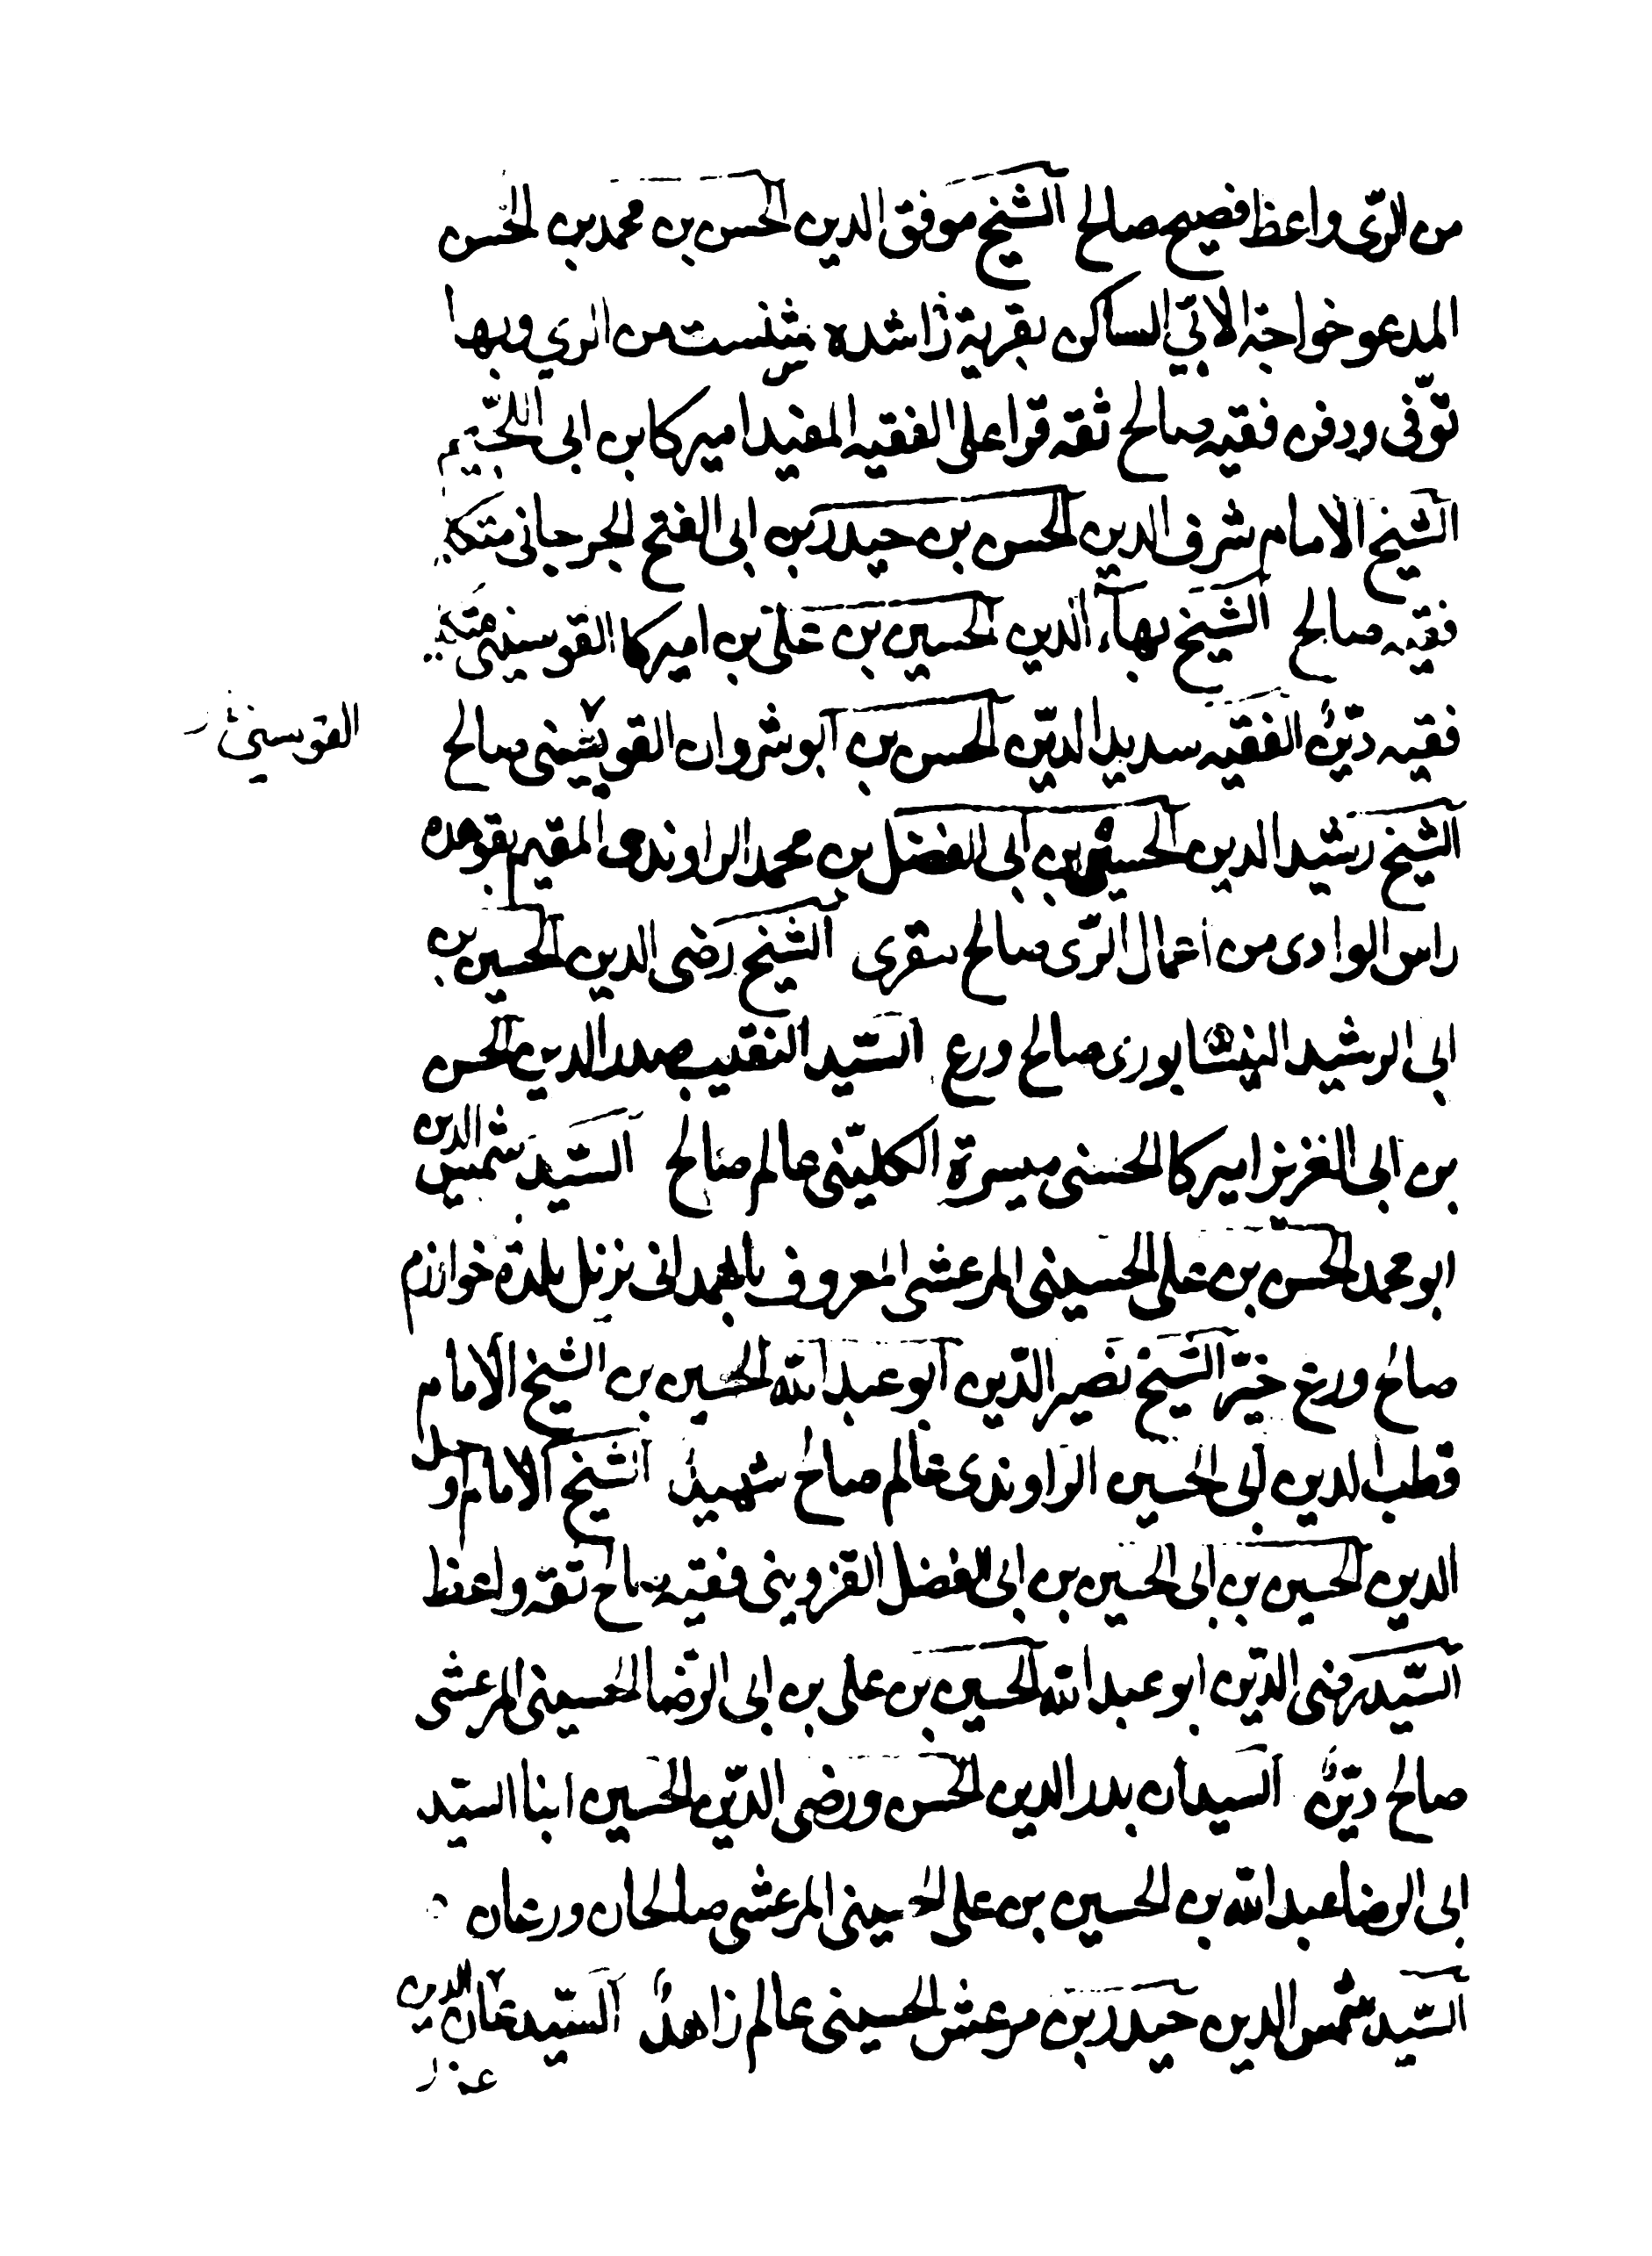 من الرّى واعظ فصيح صالح الشيخ موفق الدين الحسن بن محمد بن الحسن
المدعو خواجة الآبي الساكن بقرية راشده من الري وبها
توّفى ودفن فقيه صالح ثقه قرا على الفقيه المفيد اميركا بن ابى اللجيم
الشيخ الامام شرف الدين الحسن بن حيدر بن ابى الفتح الجرجانى متكلم
فقيه صالح الشيخ بهآء الدين الحسين بن على بن اميركا القوسينى متكلم
فقيه ديّن الفقيه سديد الديّن الحسن بن انوشروان القوسينى صالح
القوسينى
الشيخ رشيد الدين الحسين بن ابى الفضل بن محمد الراوندى المقيم بقوهده
راس الوادى من اعمال الرّى صالح مقرى الشيخ رضى الدين الحسين بن
ابى الرشيد النيشابورى صالح ورع السّيد النقيب صدر الدين الحسن
بن ابى العزيز اميركا الحسنى ميسرة الكليّنى عالم صالح السّيد شمس الدين
ابو محمد الحسن بن على الحسينى المرعشى المعروف بالهمدانى نزيل بلدة خوارزم
صالح ورع خيّر الشيخ نصير الدّين ابو عبد الله الحسين بن الشيخ الامام
قطب الدين ابى الحسين الراوندى عالم صالح شهيد الشيخ الامام اوحد
الدين الحسين بن ابى الحسين بن ابى الفضل القزوينى فقيه صالح ثقه واعظ
السّيد رضى الدّين ابو عبد الله الحسين بن على بن ابى الرّضا الحسينى المرعشى
صالح ديّن السيدان بدر الدين الحسن ورضى الدّين الحسين ابنا السيّد
ابى الرضا عبد الله بن الحسين بن على الحسينى المرعشى صالحان ورعان
السّيد شمس الدين حيدر بن مرعش الحسينى عالم زاهد السّيد الدين